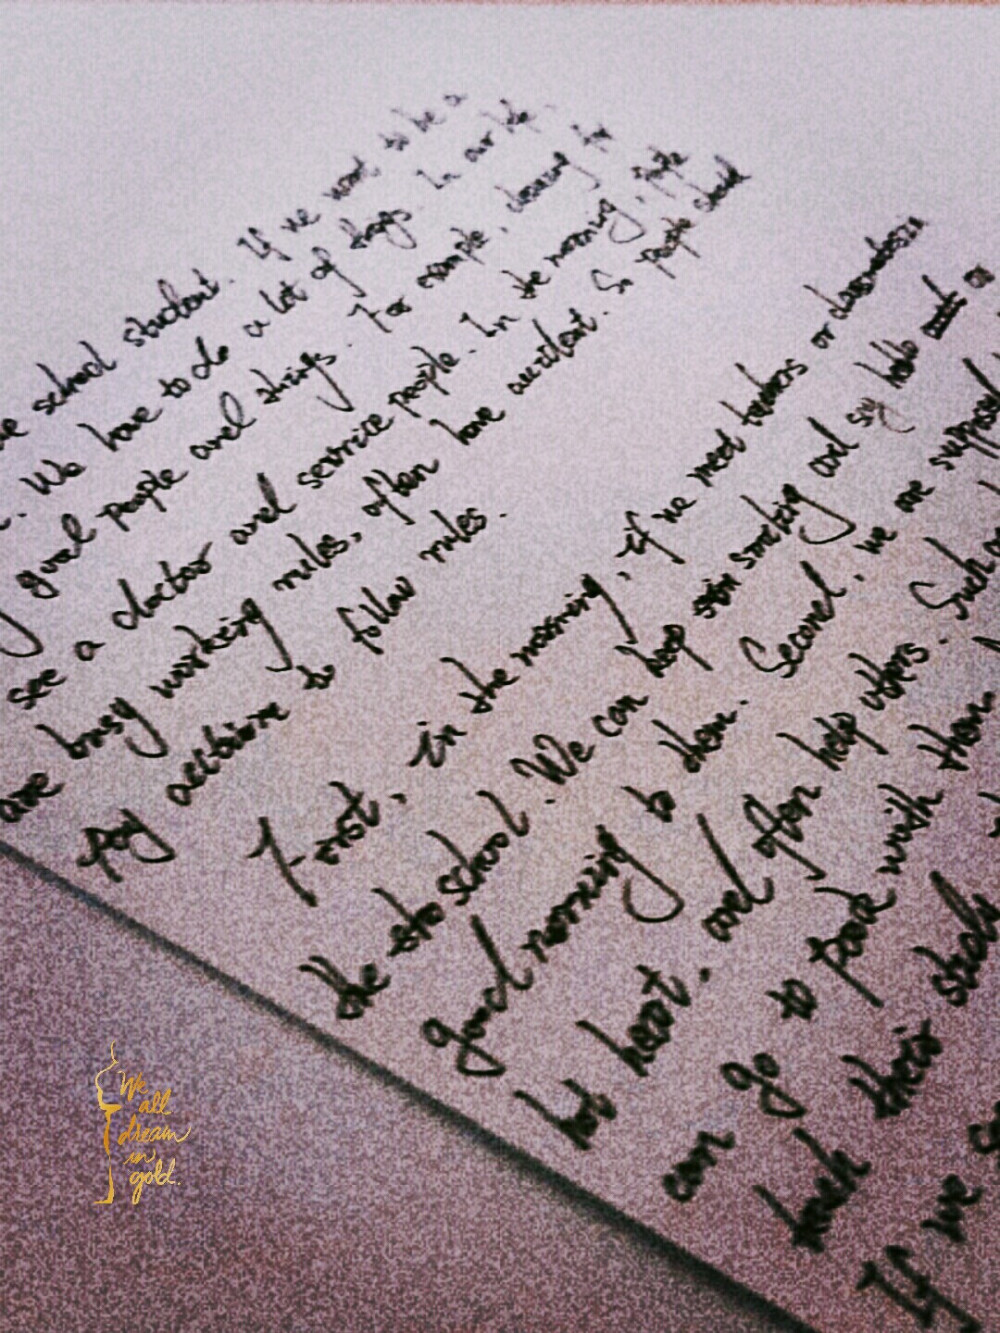 school student. If we want to be a
We have to do a lot of things. In our life
good people and things. For example, cleaning for
see a doctor and service people. In the morning, people
are busy working rules, often have accident. So people should
Pay actione to follow rules.
First, in the morning, if we meet teachers or classmates in
the school. We can keep smiling and say hello or
good morning to them. Second, we are supposed
hot heart. and often help others. Such as
can go to park with them.
teach their study
If we
We
all
dream
in
gold.